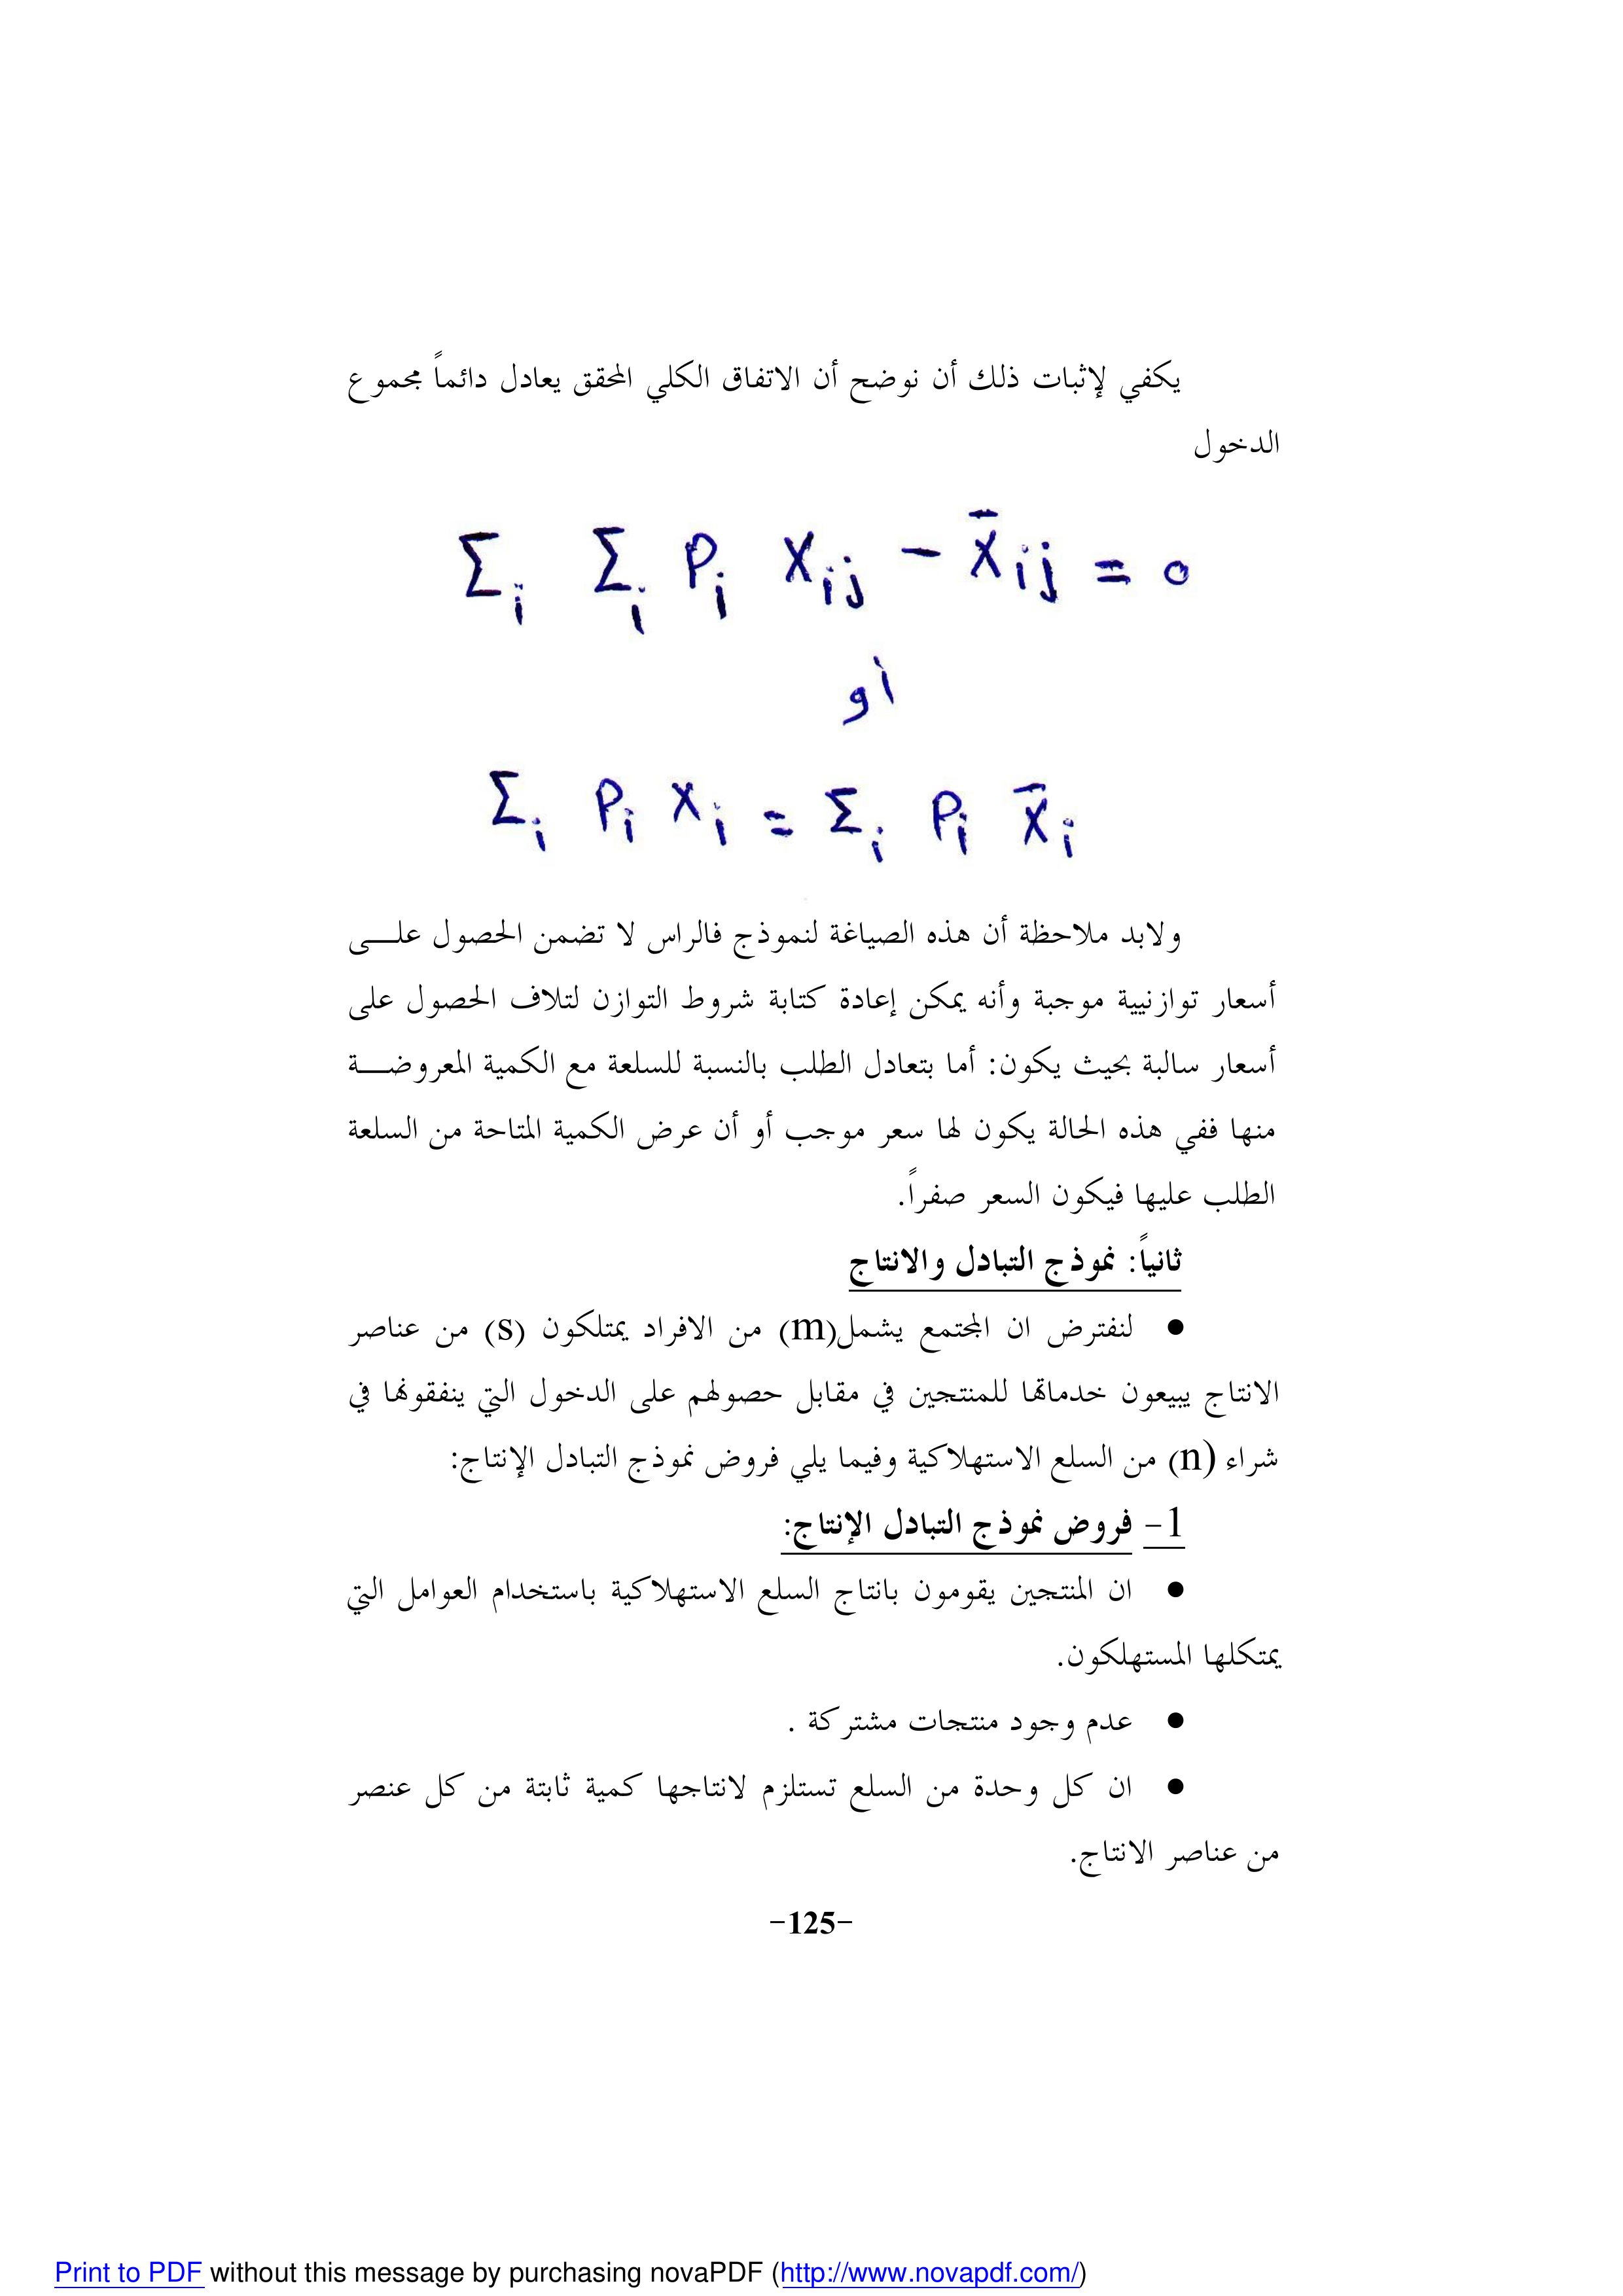 يكفي لإثبات ذلك أن نوضح أن الاتفاق الكلي المحقق يعادل دائماً مجموع
الدخول
Σi Σi Pi Xij - X̄ij = 0
أو
Σi Pi Xi = Σi Pi X̄i
ولابد ملاحظة أن هذه الصياغة لنموذج فالراس لا تضمن الحصول علـــى
أسعار توازنييه موجبة وأنه يمكن إعادة كتابة شروط التوازن لتلاف الحصول على
أسعار سالبة بحيث يكون: أما بتعادل الطلب بالنسبة للسلعة مع الكمية المعروضـــة
منها ففي هذه الحالة يكون لها سعر موجب أو أن عرض الكمية المتاحة من السلعة
الطلب عليها فيكون السعر صفراً.
ثانياً: نموذج التبادل والانتاج
● لنفترض ان المجتمع يشمل(m) من الافراد يمتلكون (s) من عناصر
الانتاج يبيعون خدماتها للمنتجين في مقابل حصولهم على الدخول التي ينفقونها في
شراء (n) من السلع الاستهلاكية وفيما يلي فروض نموذج التبادل الإنتاج:
1- فروض نموذج التبادل الإنتاج:
● ان المنتجين يقومون بانتاج السلع الاستهلاكية باستخدام العوامل التي
يمتكلها المستهلكون.
● عدم وجود منتجات مشتركة .
● ان كل وحدة من السلع تستلزم لانتاجها كمية ثابتة من كل عنصر
من عناصر الانتاج.
-125-
Print to PDF without this message by purchasing novaPDF (http://www.novapdf.com/)